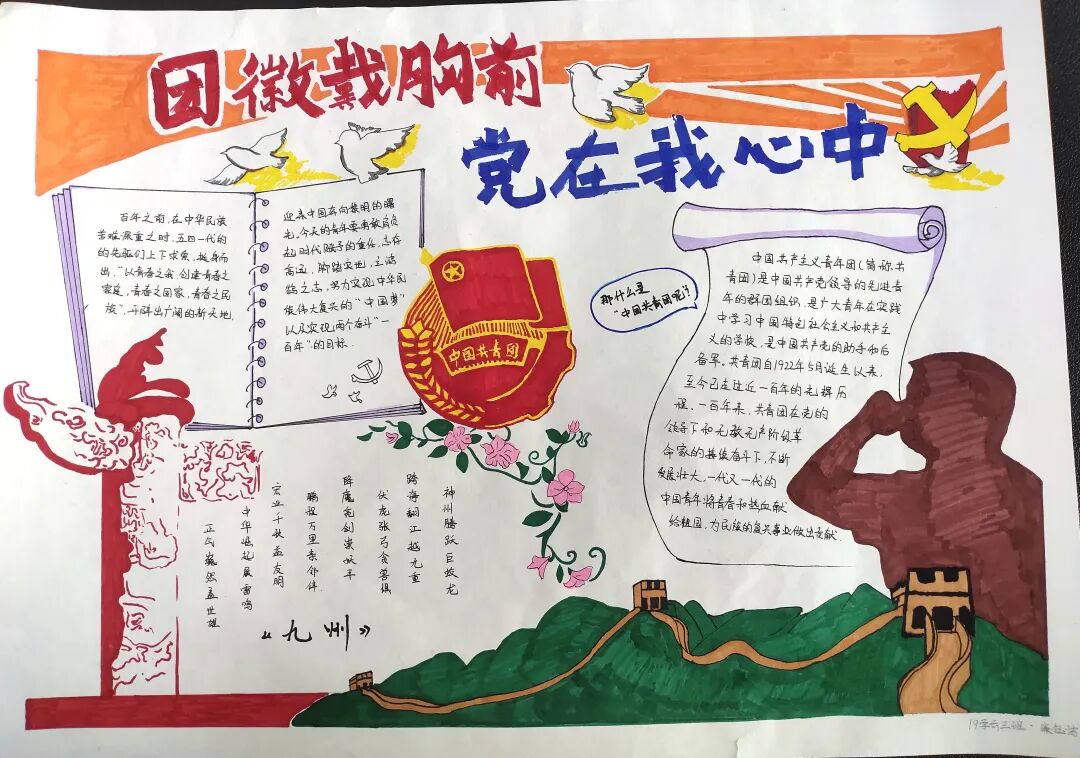 团徽戴胸前
党在我心中
百年之前,在中华民族
苦难深重之时,五四一代的
的先驱们上下求索,挺身而
出,“以青春之我,创建青春之
家庭,青春之国家,青春之民
族”,开辟出广阔的新天地,
迎来中国奔向黎明的曙
光。今天的青年要勇敢肩负
起时代赋予的重任,志存
高远,脚踏实地,立鸿
鹄之志,努力实现中华民
族伟大复兴的“中国梦”
以及实现“两个奋斗”一
百年”的目标.
中国共青团
那什么是
“中国共青团呢?”
中国共产主义青年团(简称共
青团)是中国共产党领导的先进青
年的群团组织,是广大青年在实践
中学习中国特色社会主义和共产主
义的学校,是中国共产党的助手和后
备军。共青团自1922年5月诞生以来,
至今已走过近一百年的光辉历
程。一百年来,共青团在党的
领导下和无数无产阶级革
命家的甚续奋斗下,不断
发展壮大。一代又一代的
中国青年将青春和热血献
给祖国,为民族的复兴事业做出贡献.
神州腾跃巨蛟龙
跨海翻江越九重
伏虎张弓贪兽惧
降魔亮剑祟妖平
鹏投万里亲邻伴
宏业千秋益友朋
中华崛起展雷鸣
正气巍然盖世雄
《九州》
19学前三班·